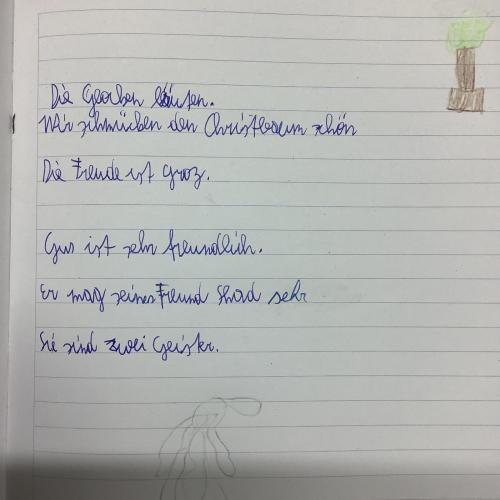 Die Glocken läuten.
Wir schmücken den Christbaum schön
Die Freude ist groz.
Gus ist sehr freundlich.
Er mag seines Freund Shad sehr
Sie sind zwei Geister.